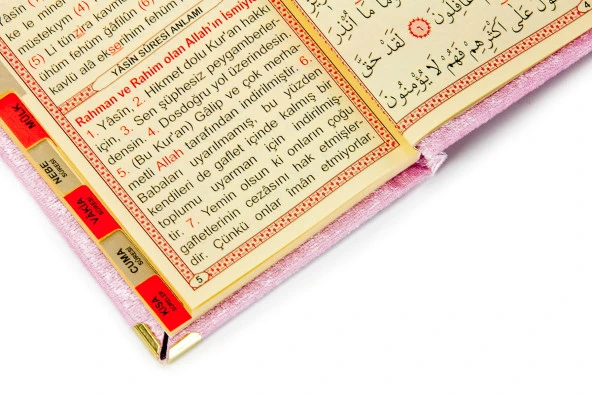 Yâsîn
müstekıym (4)
(5) Li tünzira kavmen
ühûm fehüm ğâfilûn (6)
kavlü alâ ekserihim fehüm
YÂSÎN SÛRESİ ANLAMI
Rahman ve Rahim olan Allah'ın ismiyle
1. Yâsîn, 2. Hikmet dolu Kur'an hakkı
için 3. Sen şüphesiz peygamberler-
densin. 4. Dosdoğru yol üzerindesin
5. (Bu Kur'an) Galip ve çok merha-
metli Allah tarafından indirilmiştir. 6.
Babaları uyarılmamış, bu yüzden
kendileri de gaflet içinde kalmış bir
toplumu uyarman için indirilmiş-
tir. 7. Yemin olsun ki onların çoğu
gafletlerinin cezâsını hak etmişler-
dir. Çünkü onlar îmân etmiyorlar.
5
MÜLK
NEBE
SÛRESİ
VAKIA
SÛRESİ
CUMA
SÛRESİ
KISA
SÛRELER
4
غَافِلُونَ ﴿٦﴾ لَقَدْ حَقَّ
عَلَى أَكْثَرِهِمْ فَهُمْ لَا يُؤْمِنُونَ